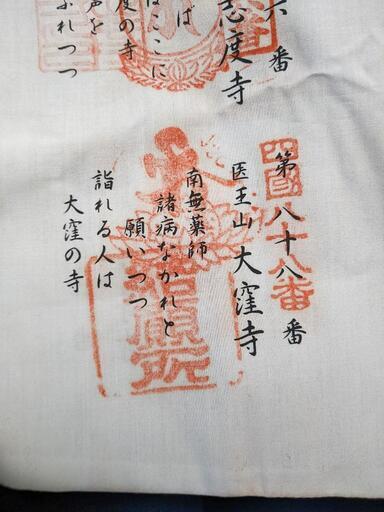 六番
志度寺
ば
はここに
度の寺
声を
ふれつつ
第八十八番
四国八十八番
医王山 大窪寺
南無薬師
諸病なかれと
願いつつ
詣れる人は
大窪の寺
結願所